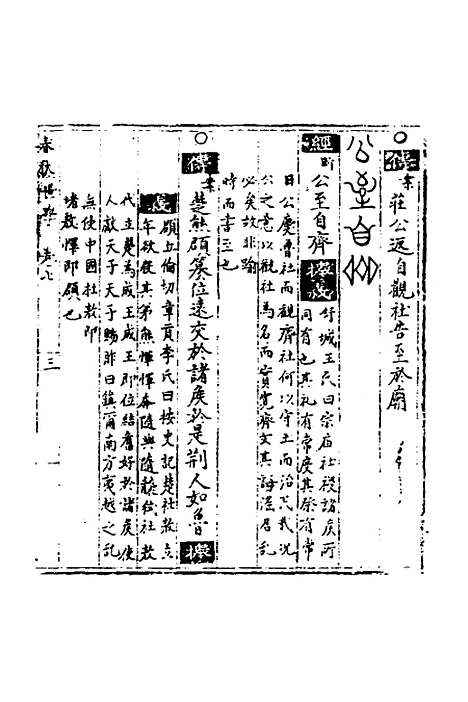 傳案莊公返自觀社告至於廟
公至自齊
經斷公至自齊據義
舒城王氏曰宗庙社稷諸矦所
同有也其礼有常度其祭有常
日公慶魯社而觀齊社何以守土而治民哉况
公之意以觀社為名而實窺齊女其誨淫居乱
必矣故非踰
時而書至也
傳案楚熊頵簒位遠交於諸矦於是荆人如魯據
義頵丘倫切章貢李氏曰按史記楚杜敖立
年欲殺其弟熊惲惲奔隨與隨襲弑杜敖
代立是為成王成王即位結舊好於諸矦使
人献天子天子赐胙曰鎮爾南方夷越之乱
無侵中國杜敖即
堵敖惲即頵也
春秋 卷七 三